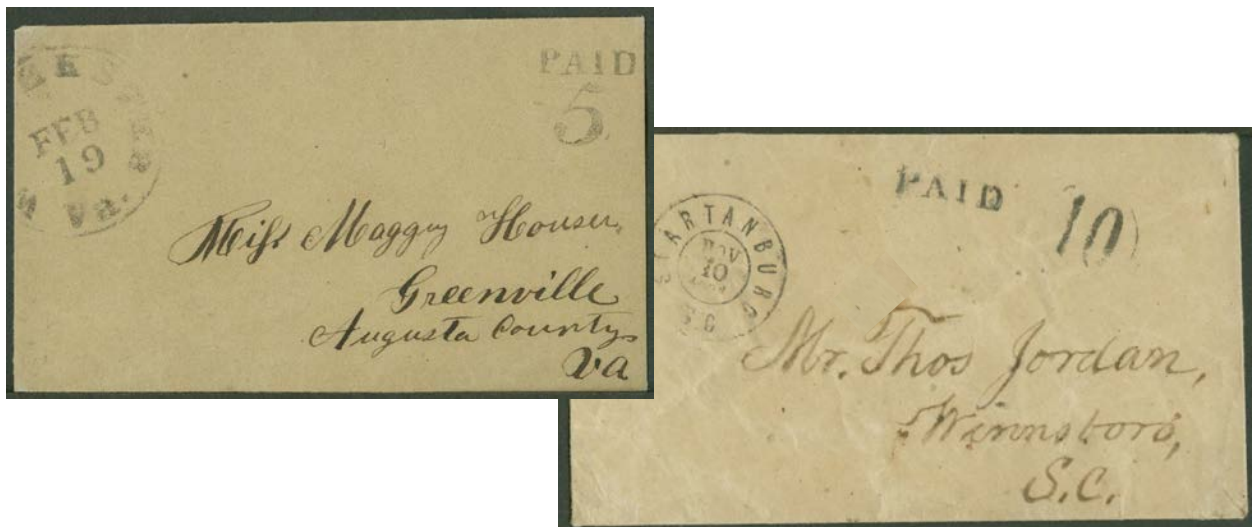 FEB
19
Va.
PAID
5
Miſs Maggy Houser,
Greenville
Augusta County
Va
SPARTANBURG
S.C
NOV
10
PAID 10
Mr. Thos Jordan,
Winnsboro,
S.C.